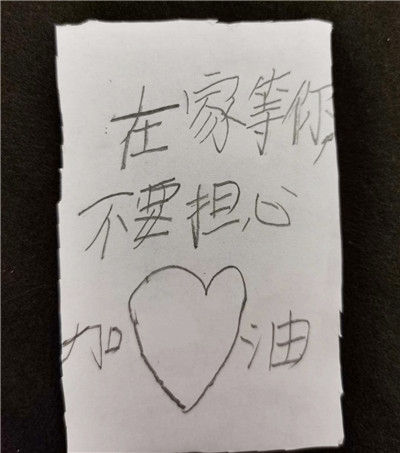 在家等你,
不要担心
加油